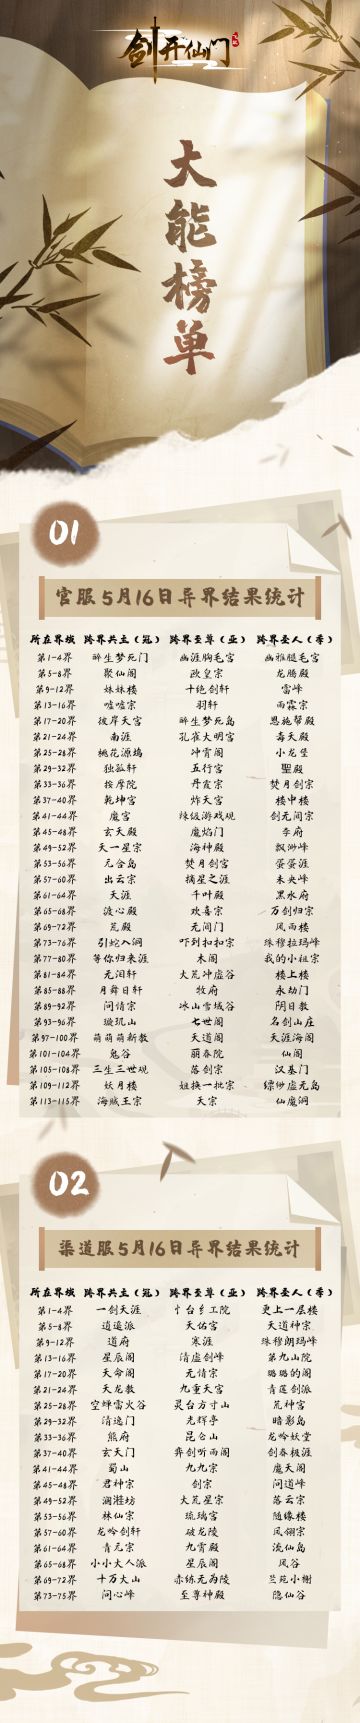 剑开仙门
大能榜单
01
官服5月16日异界结果统计
所在界域 跨界共主（冠） 跨界至尊（亚） 跨界圣人（季）
第1-4界 醉生梦死门 幽涯胸毛宫 幽雅腿毛宫
第5-8界 聚仙阁 欧皇宗 龙腾殿
第9-12界 妹妹楼 十绝剑轩 雷峰
第13-16界 嘘嘘宗 羽轩 雨霖宗
第17-20界 彼岸天宫 醉生梦死岛 恩施帮殿
第21-24界 南涯 孔雀大明宫 毒天殿
第25-28界 桃花源坞 冲霄阁 小龙堡
第29-32界 独孤轩 五行宫 聖殿
第33-36界 按摩院 丹霞宗 焚月剑宗
第37-40界 乾坤宫 炸天宫 楼中楼
第41-44界 魔宫 辣级游戏观 剑无间宗
第45-48界 玄天殿 魔焰门 李府
第49-52界 天一星宗 海神殿 飘渺峰
第53-56界 元合岛 焚月剑宫 蛋蛋涯
第57-60界 出云宗 摘星之涯 未央峰
第61-64界 天涯 千叶殿 黑水府
第65-68界 渡心殿 欢喜宗 万剑归宗
第69-72界 荒殿 无间门 风雨楼
第73-76界 引蛇入洞 吓到扣扣宗 珠穆拉玛峰
第77-80界 等你归来涯 木阁 我的小祖宗
第81-84界 无泪轩 大荒冲虚谷 楼上楼
第85-88界 月舜日轩 牧府 永劫门
第89-92界 问情宗 冰山雪域谷 阴日教
第93-96界 璇玑山 七世阁 名剑山庄
第97-100界 萌萌萌新教 天道阁 天涯海阁
第101-104界 鬼谷 丽春院 仙阁
第105-108界 三生三世观 落剑宗 汉基门
第109-112界 妖月楼 姐换一批宗 缥缈虚无岛
第113-115界 海贼王宗 天宗 仙魔洞
02
渠道服5月16日异界结果统计
所在界域 跨界共主（冠） 跨界至尊（亚） 跨界圣人（季）
第1-4界 一剑天涯 更上一层楼
第5-8界 逍遥派 天佑宫 天道神宗
第9-12界 道府 寒涯 珠穆朗玛峰
第13-16界 星辰阁 清虚剑峰 第九山院
第17-20界 天命阁 无情宗 璐璐的阁
第21-24界 天龙教 九重天宫 青莲剑派
第25-28界 空蝉雷火谷 灵台方寸山 荒神宫
第29-32界 清逸门 光辉亭 暗影岛
第33-36界 熊府 昆仑山 龙吟妖堂
第37-40界 玄天门 弈剑听雨阁 剑春极涯
第41-44界 蜀山 九九宗 魔天阁
第45-48界 君神宗 剑宗 问道峰
第49-52界 大荒星宗 落云宗
第53-56界 林仙宗 琉璃宫 随缘楼
第57-60界 龙吟剑轩 破龙陵 风翎宗
第61-64界 青元宗 九霄殿 流仙岛
第65-68界 小小大人派 星辰阁 风谷
第69-72界 十万大山 赤练无为陵 兰苑小榭
第73-75界 问心峰 至尊神殿 隐仙谷